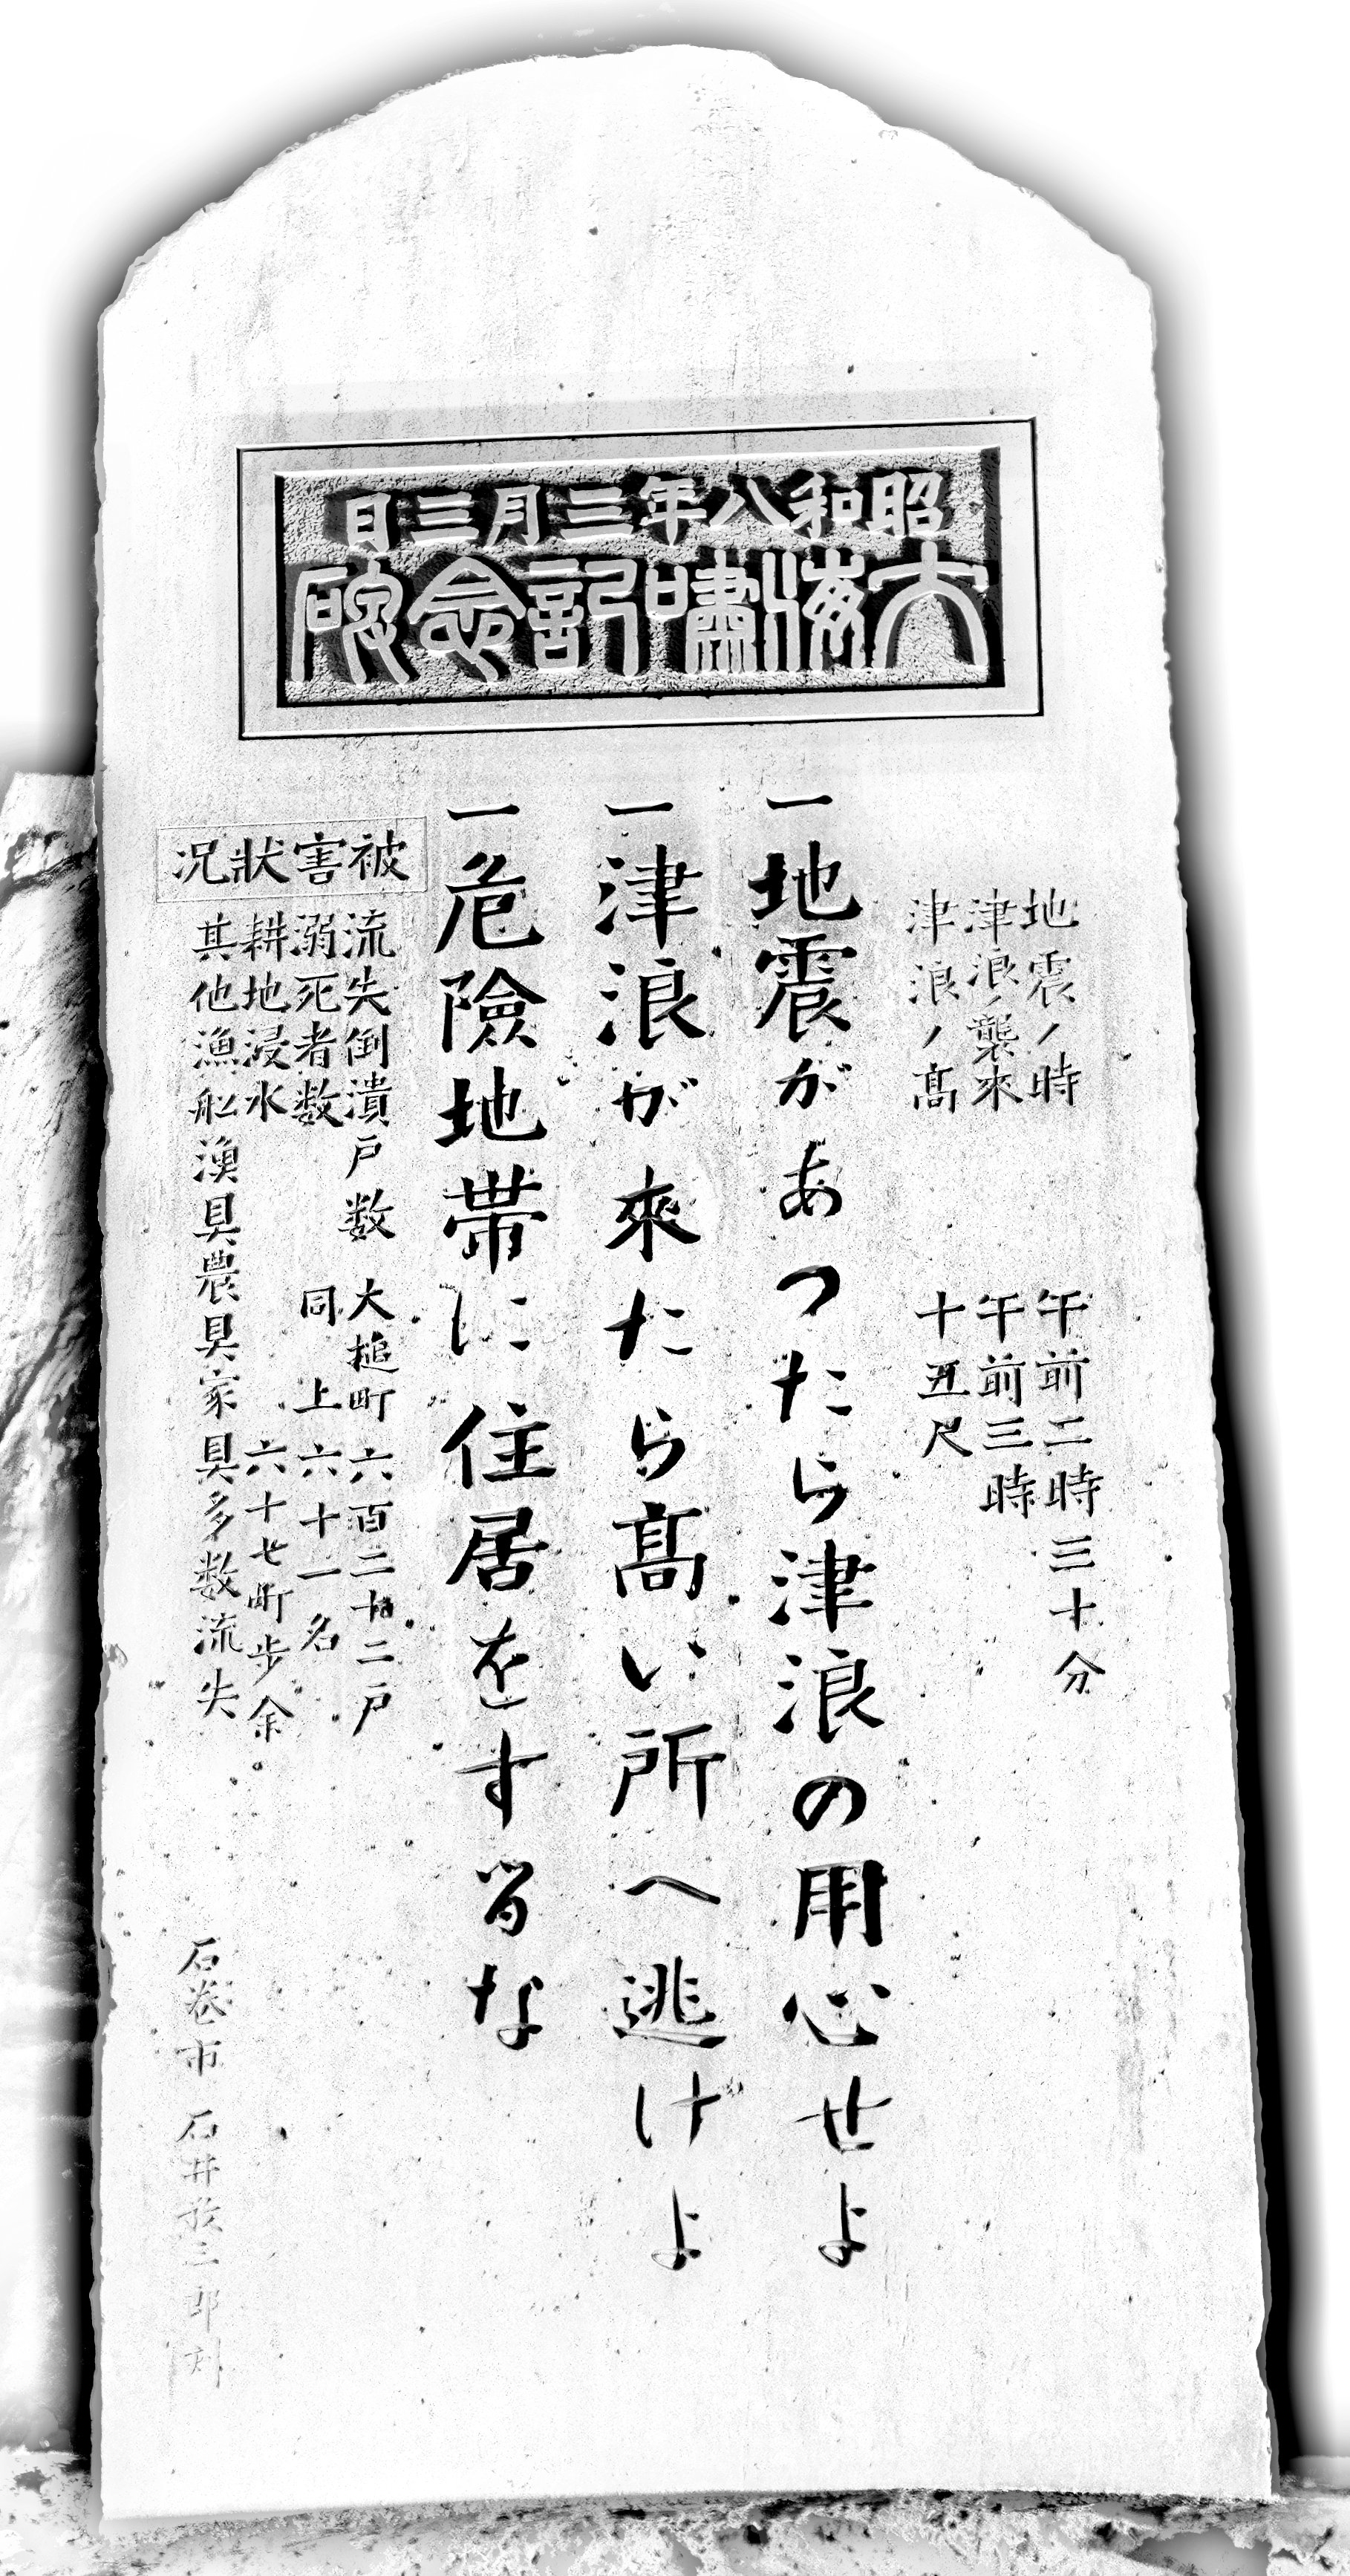 昭和八年三月三日
大海嘯記念碑
地震ノ時 午前二時三十分
津浪ノ襲來 午前三時
津浪ノ髙 十五尺
一地震があつたら津浪の用心せよ
一津浪が來たら髙い所へ逃げよ
一危險地帯に住居をするな
被害狀況
流失倒潰戸数 大槌町 六百二十二戸
溺死者数 同上 六十一名
耕地浸水 六十七町歩余。
其他漁船漁具農具家具多数流失
石巻市 石井 三郎刻